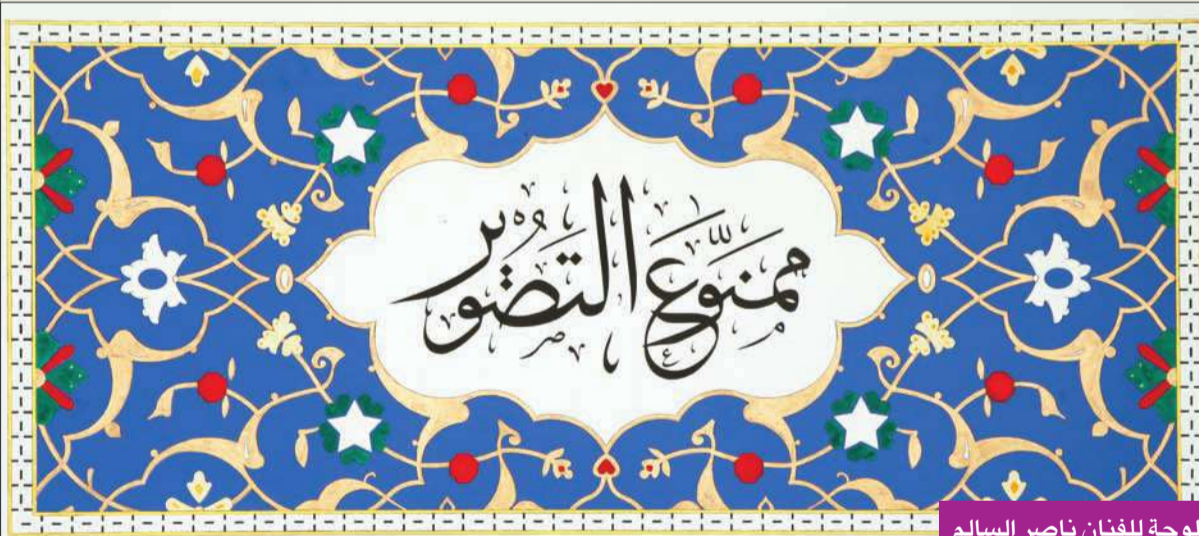 ممنوع التصوير
لوحة للفنان ناصر السالم